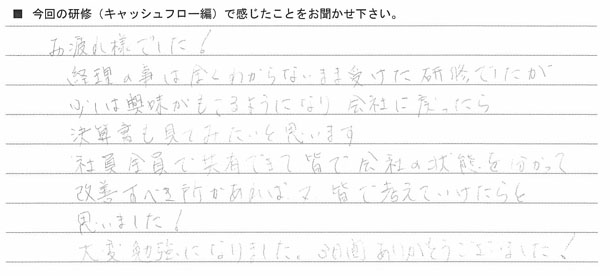 ■ 今回の研修（キャッシュフロー編）で感じたことをお聞かせ下さい。
お疲れ様でした！
経理の事は全くわからないまま受けた研修でしたが
少しは興味がもてるようになり 会社に戻ったら
決算書も見てみたいと思います
社員全員で共有できて皆で会社の状態を分かって
改善すべき所があれば又皆で考えていけたらと
思いました！
大変勉強になりました。3日間ありがとうございました！